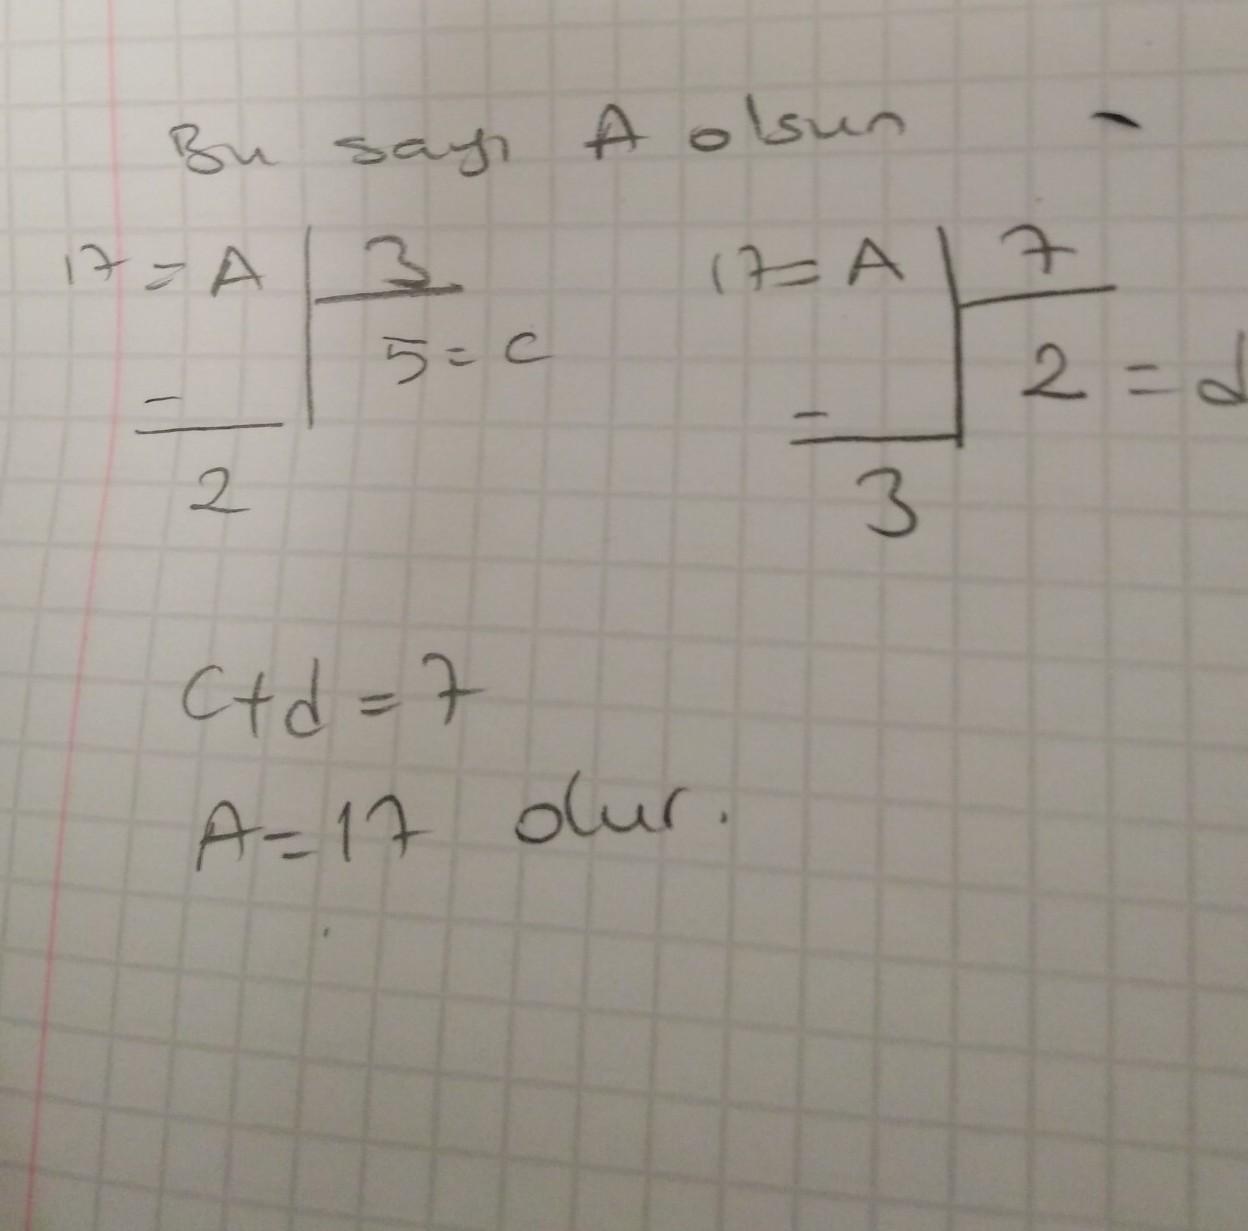 Bu sayı A olsun -
17 = A 3 17 = A 7
5 = c 2 = d
- -
2 3
C+d = 7
A = 17 olur.